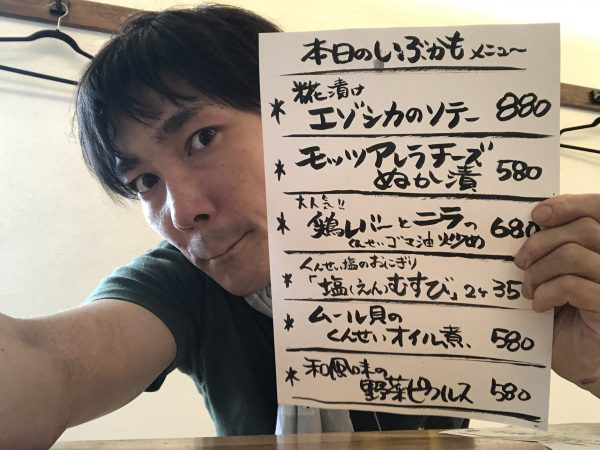 本日のいぶかもメニュー
糀漬け
* エゾシカのソテー 880
* モッツアレラチーズ
ぬか漬 580
大人気!!
* 鶏レバーとニラの
くんせいゴマ油炒め 680
くんせい塩のおにぎり
* 「塩(えんむすび」2ケ 35
* ムール貝の
くんせいオイル煮、 580
* 和風味の
野菜ピクルス 580